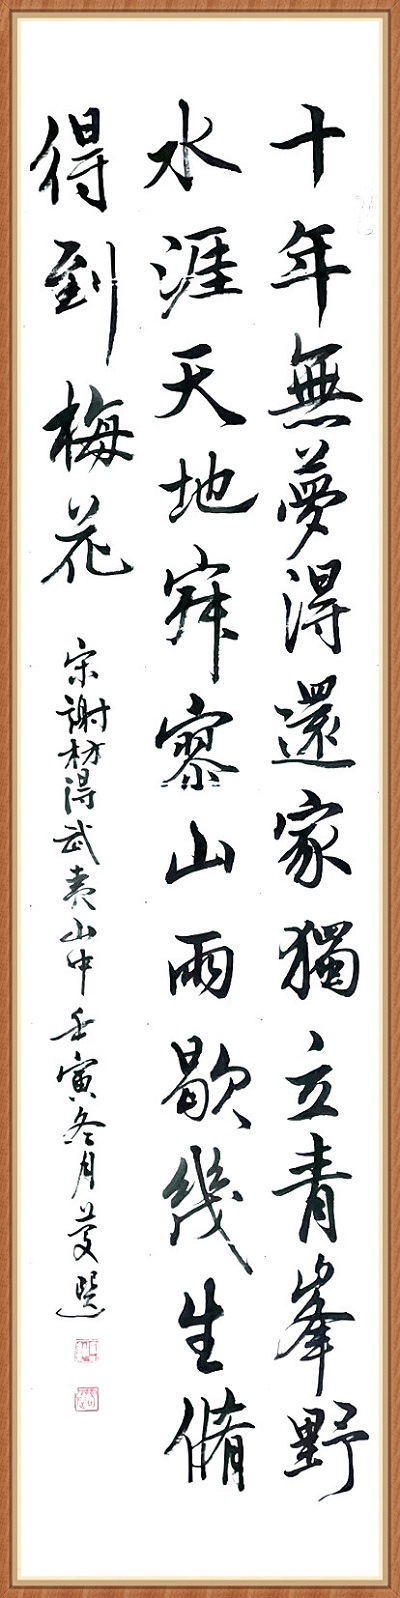 十年無夢得還家獨立青峯野
水涯天地寂寥山雨歇幾生脩
得到梅花
宋謝枋得武夷山中壬寅冬月